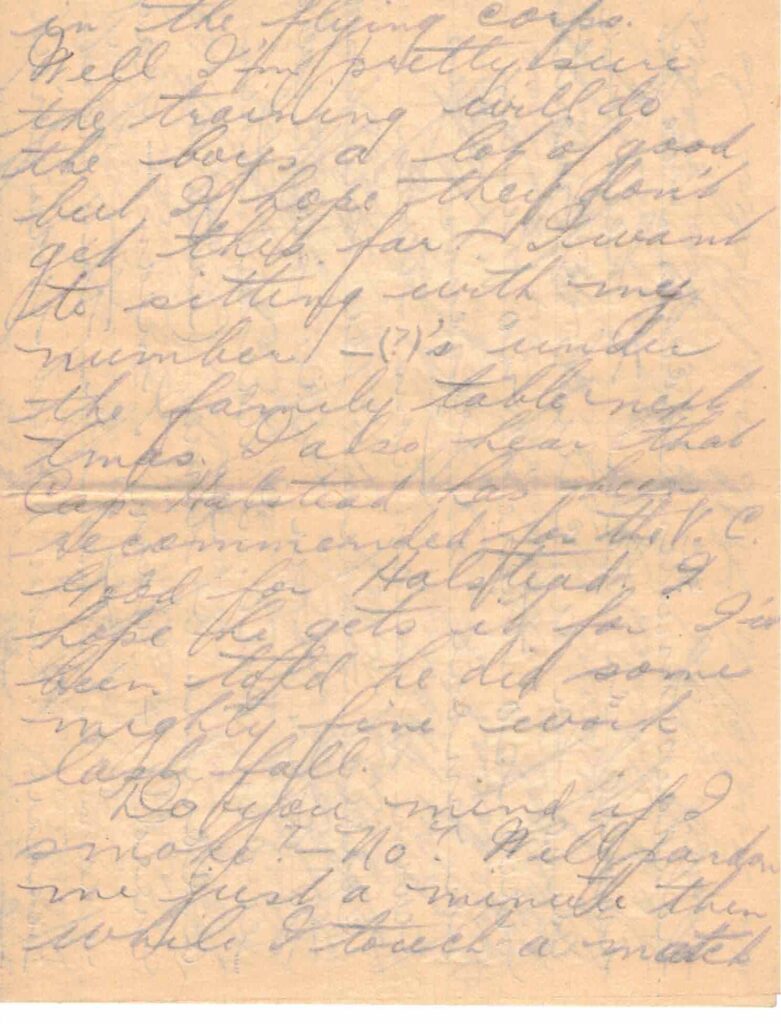 in the flying corps.
Well I'm pretty sure
the training will do
the boys a lot of good
but I hope they don't
get this far - I want
to sitting with my
number - (?)'s under
the family table next
Xmas. I also hear that
Cap. Halstead has been
recommended for the V. C.
Good for Halstead. I
hope he gets it for I've
been told he did some
mighty fine work
last fall.
Do you mind if I
smoke? - No? Well pardon
me just a minute then
while I touch a match